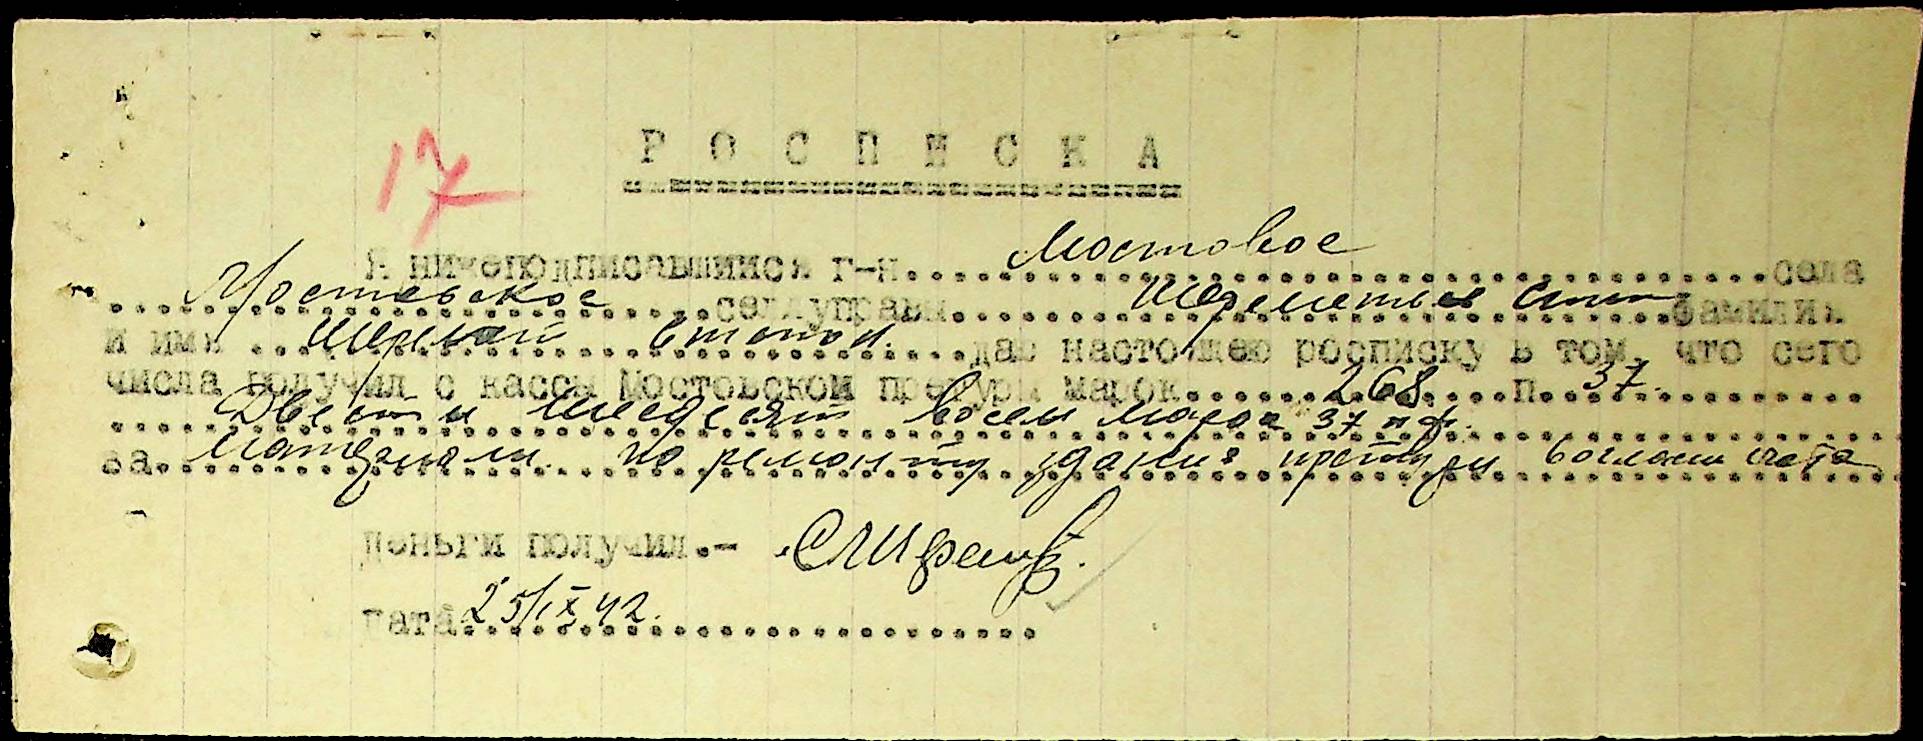 РОСПИСКА
17
Я нижеподписавшийся г-н. Мостовое села
Мостовское сельуправы. фамилия
и имя ... даю настоящею росписку в том, что сего
числа получил с кассы Мостовской претуры марок 268 п. 37.
Двести шесдесят восем марок 37 пф.
за материали по ремонту здания претури согласно счета
деньги получил.-
Дата 25/IX 42.